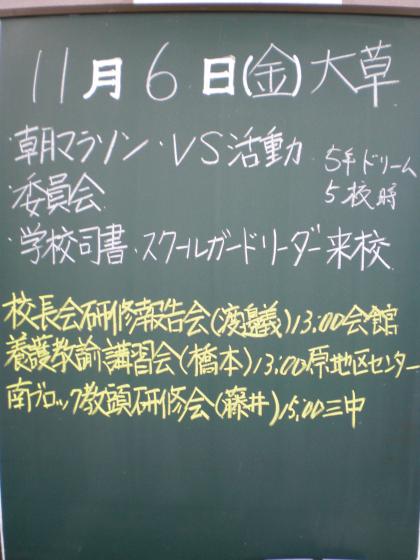 11月6日(金)大草
・朝マラソン・VS活動 5年ドリーム
・委員会 5校時
・学校司書・スクールガードリーダー来校
校長会研修報告会(渡邉義)13:00会館
養護教諭講習会(橋本)13:00原地区センター
南ブロック教頭研修会(藤井)15:00三中